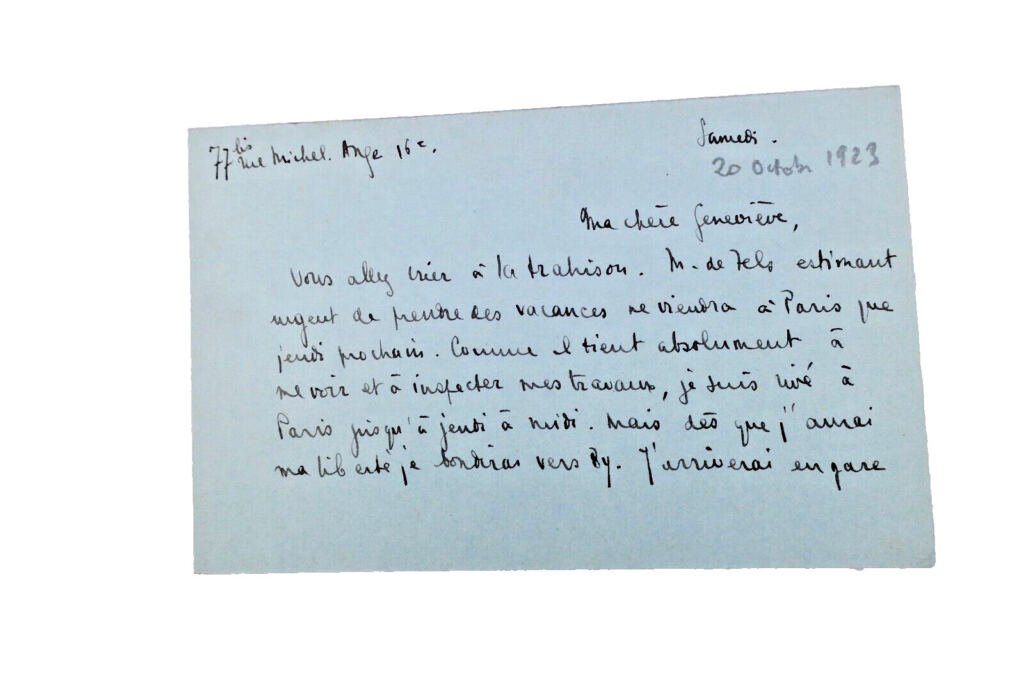 77 bis rue Michel. Ange 16e.
Samedi.
20 Octobr 1923
Ma chère Geneviève,
Vous allez crier à la trahison. M. de Fels estimant
urgent de prendre des vacances ne viendra à Paris que
jeudi prochain. Comme il tient absolument à
me voir et à inspecter mes travaux, je suis rivé à
Paris jusqu'à jeudi à midi. Mais dès que j'aurai
ma liberté je bondirai vers By. J'arriverai en gare